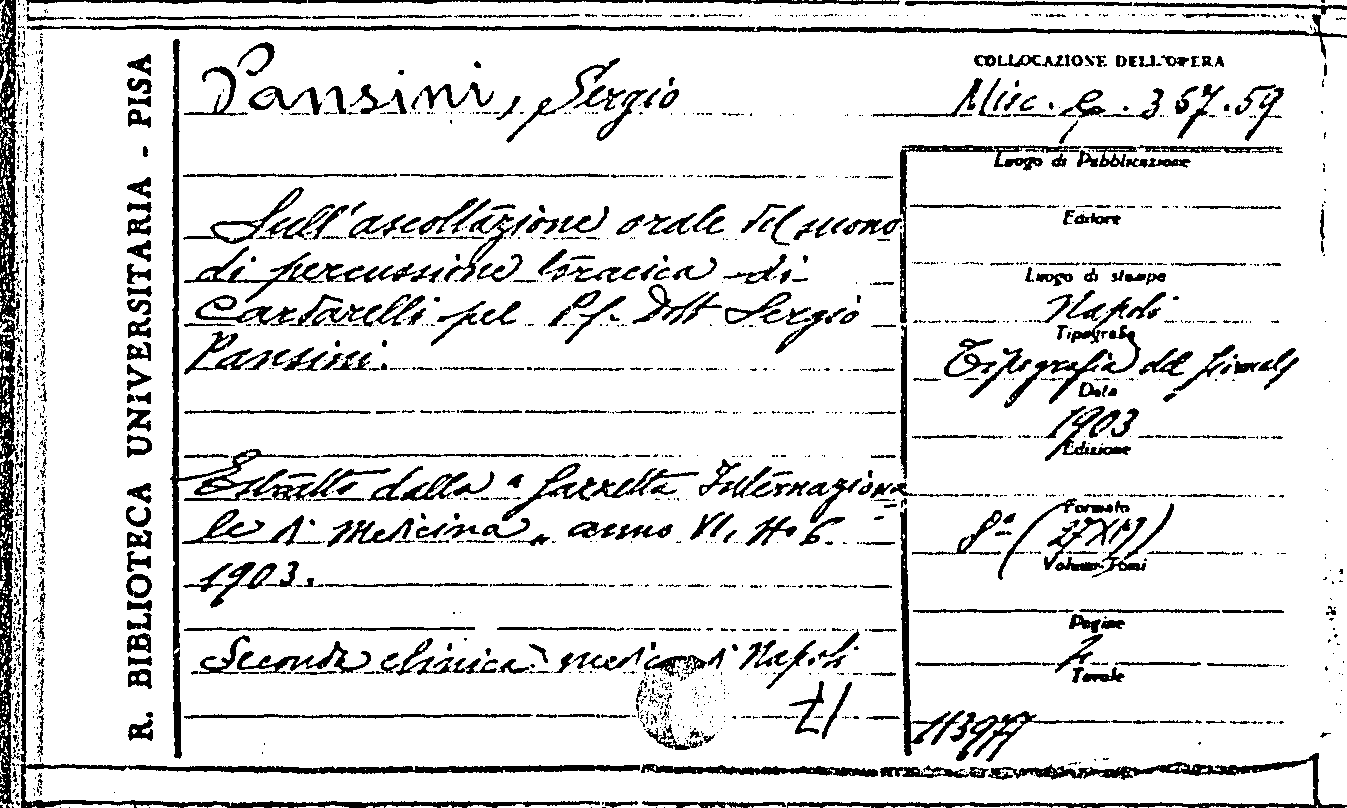 R. BIBLIOTECA UNIVERSITARIA - PISA
Pansini, Sergio
COLLOCAZIONE DELL'OPERA
Misc. 357.59
Luogo di Pubblicazione
Sull'ascoltazione orale del suono
di percussione toracica di
Cardarelli pel Pf. Dott Sergio
Pansini.
Editore
Luogo di stampa
Napoli
Tipografia
Tipografia del
Data
1903
Edizione
Estratto dalla "Gazzetta Internaziona
le di Medicina„ anno VI, No 6.
1903.
Formato
8º (27X19)
Volumi-Tomi
Seconda clinica medica di Napoli
Pagine
Tavole
113977